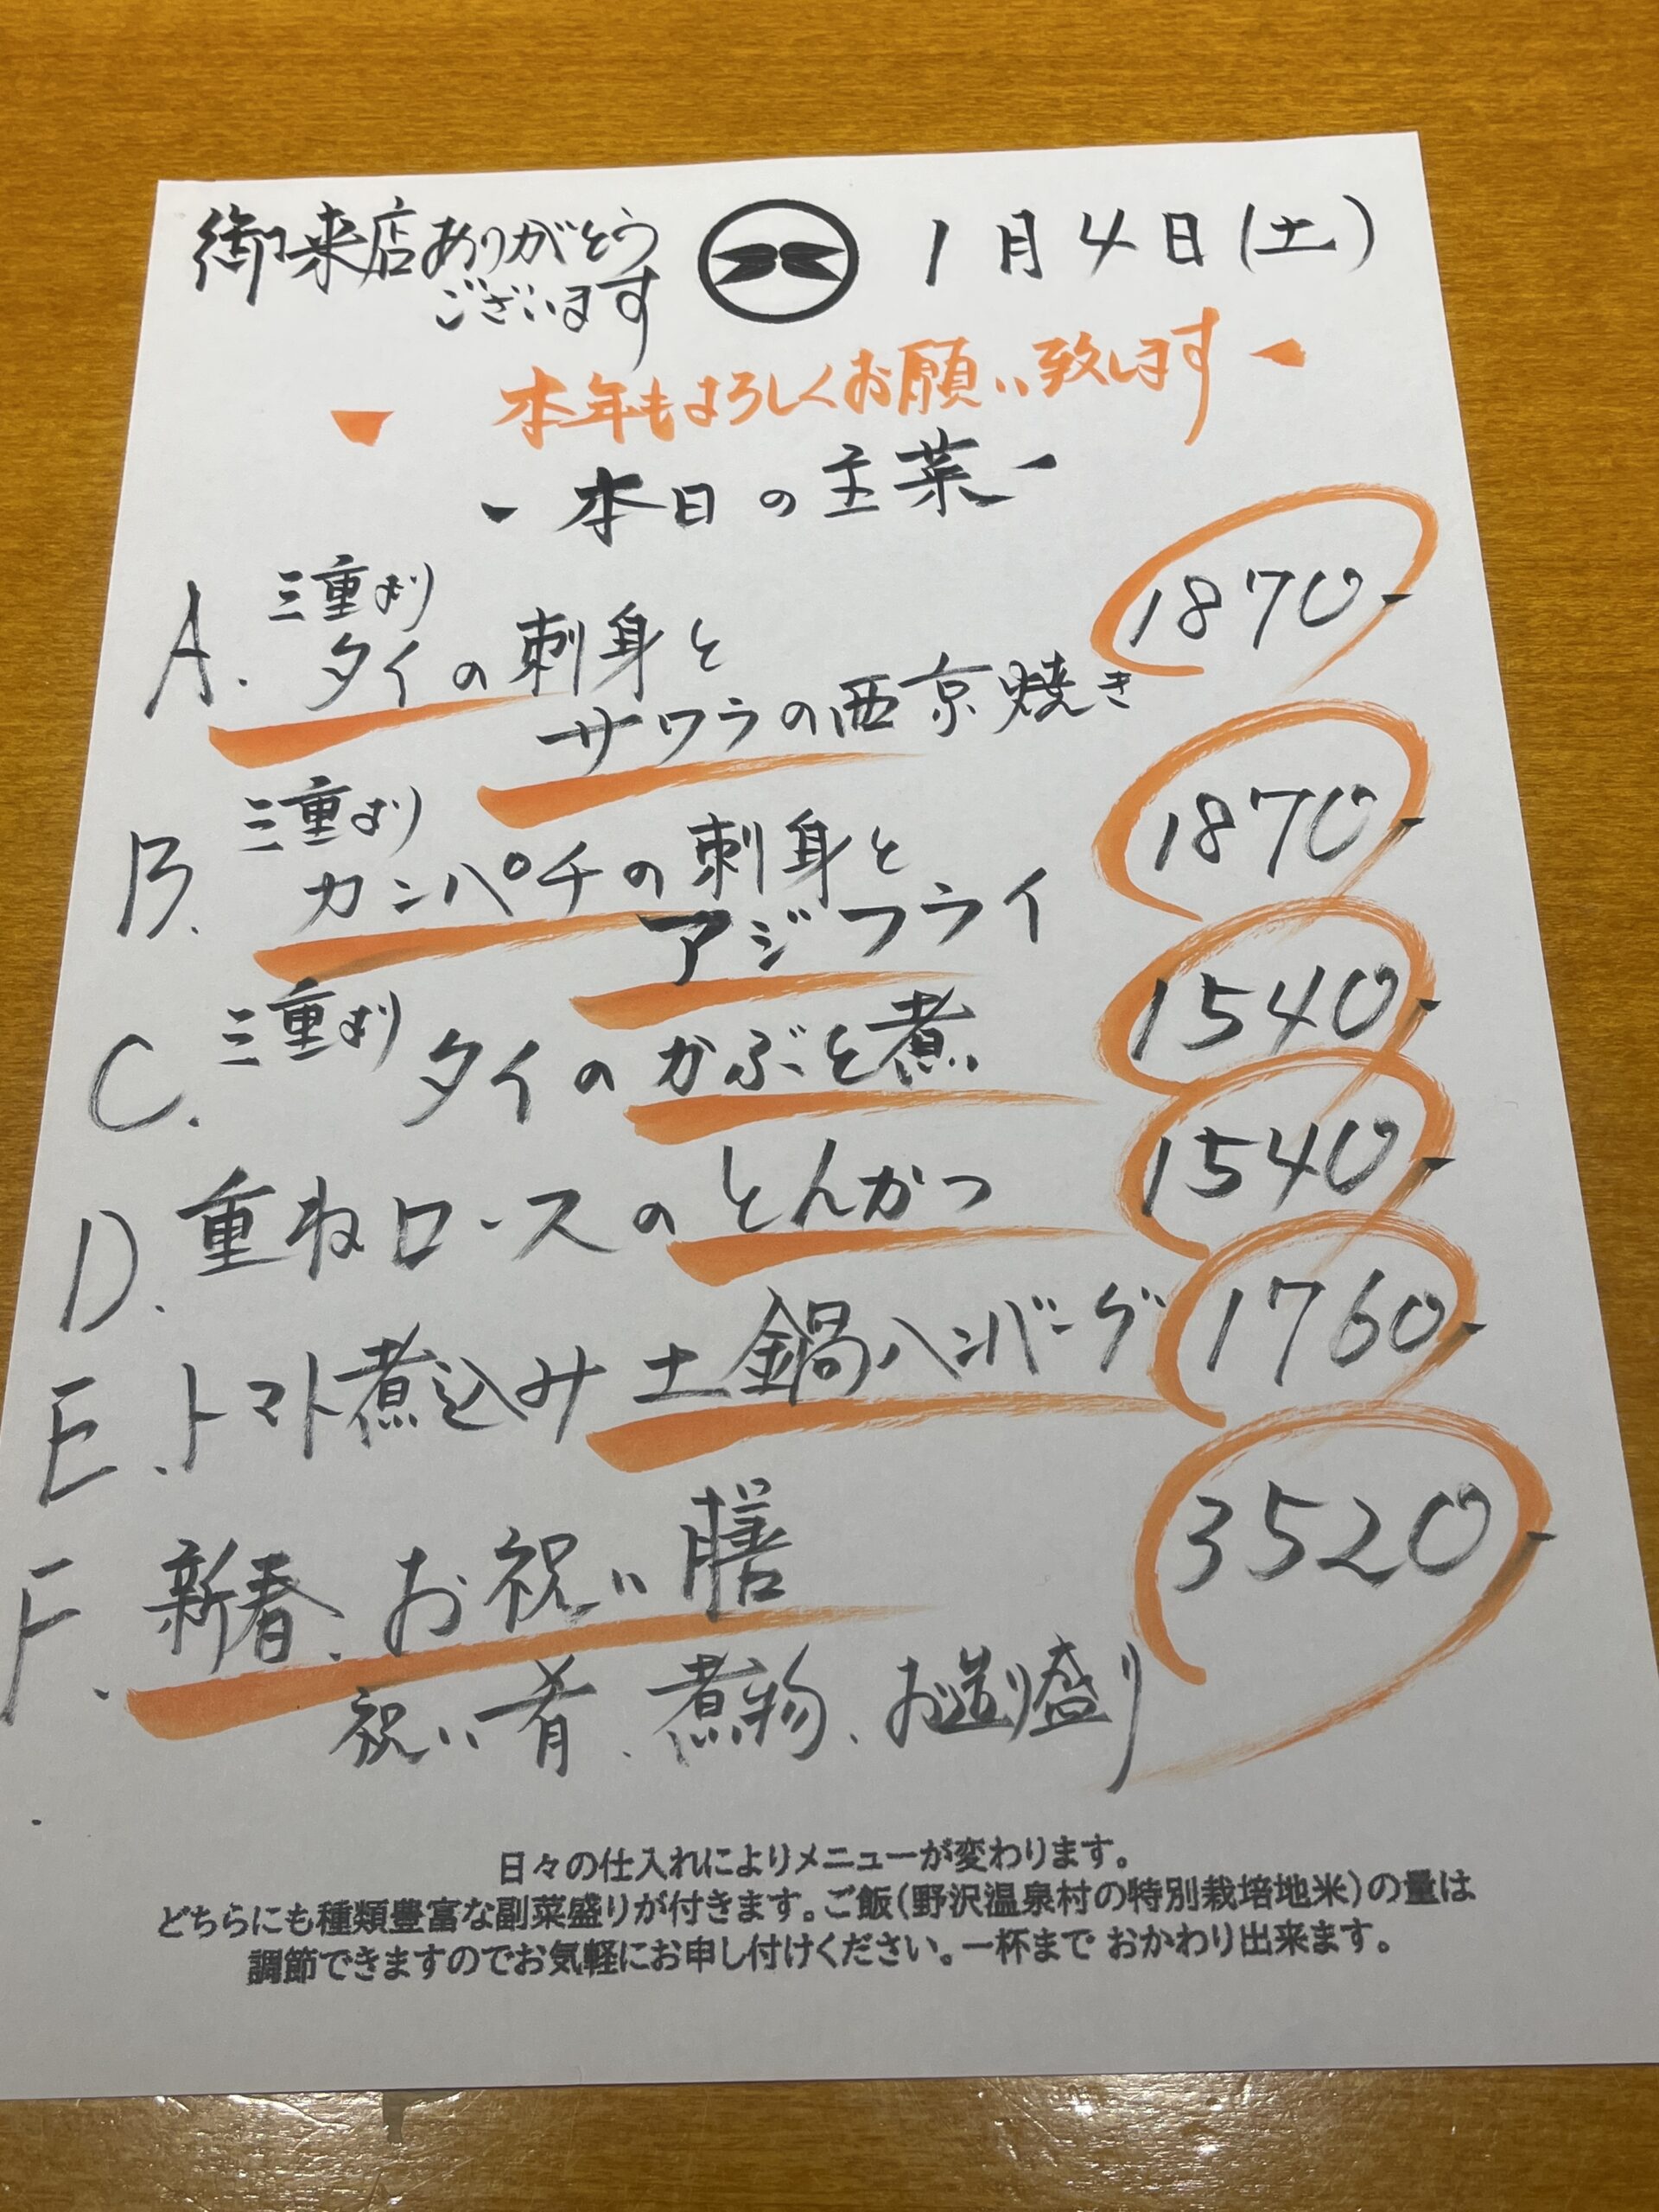 御来店ありがとう
ございます
1月4日(土)
本年もよろしくお願い致します
- 本日の主菜 -
A. 三重より
タイの刺身と
サワラの西京焼き
1870-
B. 三重より
カンパチの刺身と
アジフライ
1870-
C. 三重より タイのかぶと煮
1540-
D. 重ねロースのとんかつ
1540-
E. トマト煮込み土鍋ハンバーグ
1760-
F. 新春、お祝い膳
3520-
祝い肴、煮物、お造り盛り
日々の仕入れによりメニューが変わります。
どちらにも種類豊富な副菜盛りが付きます。ご飯(野沢温泉村の特別栽培地米)の量は
調節できますのでお気軽にお申し付けください。一杯まで おかわり出来ます。